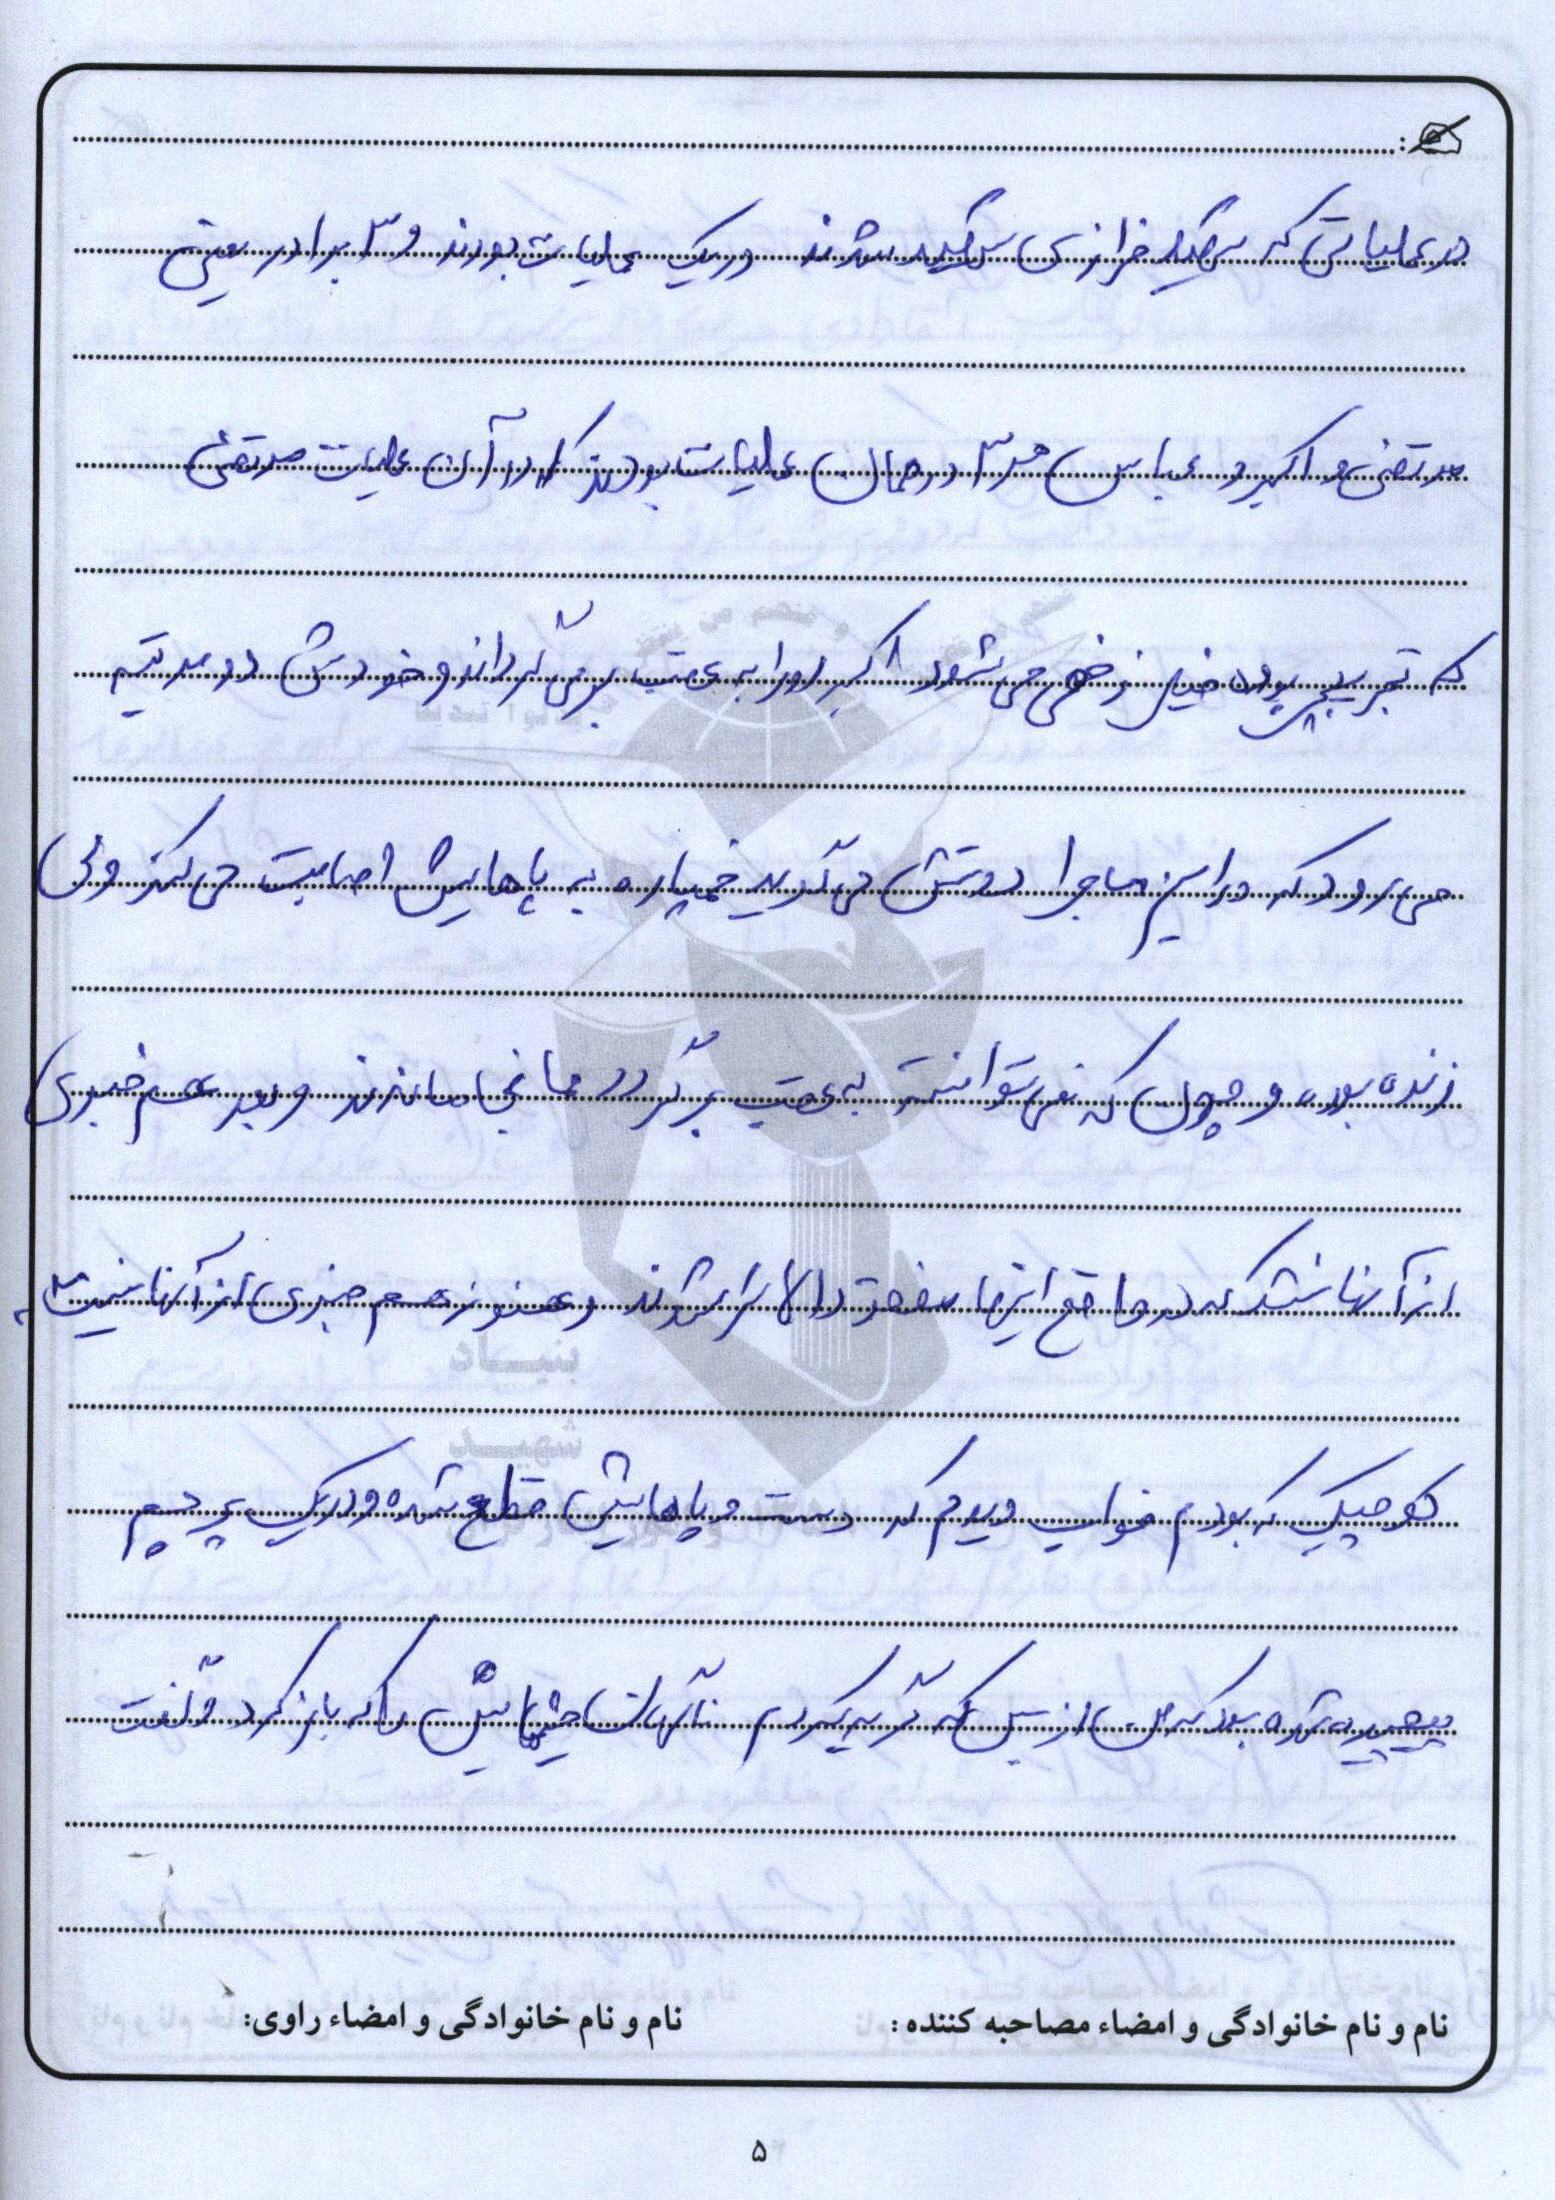 در عملیاتی که شهید خرازی شهید شدند در یک عملیات بودند و ۳ برادر یعنی
مرتضی و اکبر و عباس هر ۳ در همان عملیات بودند که در آن عملیات مرتضی
که تخریبچی بوده خیلی زخمی می شود اکبر او را به عقب برمی گرداند و خودش دو مرتبه
می رود که در این ماجرا دوستش می گوید خمپاره به پاهایش اصابت می کند ولی
زنده بوده و چون که نمی توانسته به عقب برگردد همانجا ماندند و بعد هم خبری
از آنها نشد که در واقع اینها مفقود الاثر شدند و هنوز هم خبری از آنها نیست
کوچیک که بودم خواب دیدم که دست و پاهایش قطع شده و در یک پرچم
پیچیده شده بود که من از بس که گریه کردم ناگهان چشمانش را که باز کرد و گفت
نام و نام خانوادگی و امضاء مصاحبه کننده: نام و نام خانوادگی و امضاء راوی:
۵